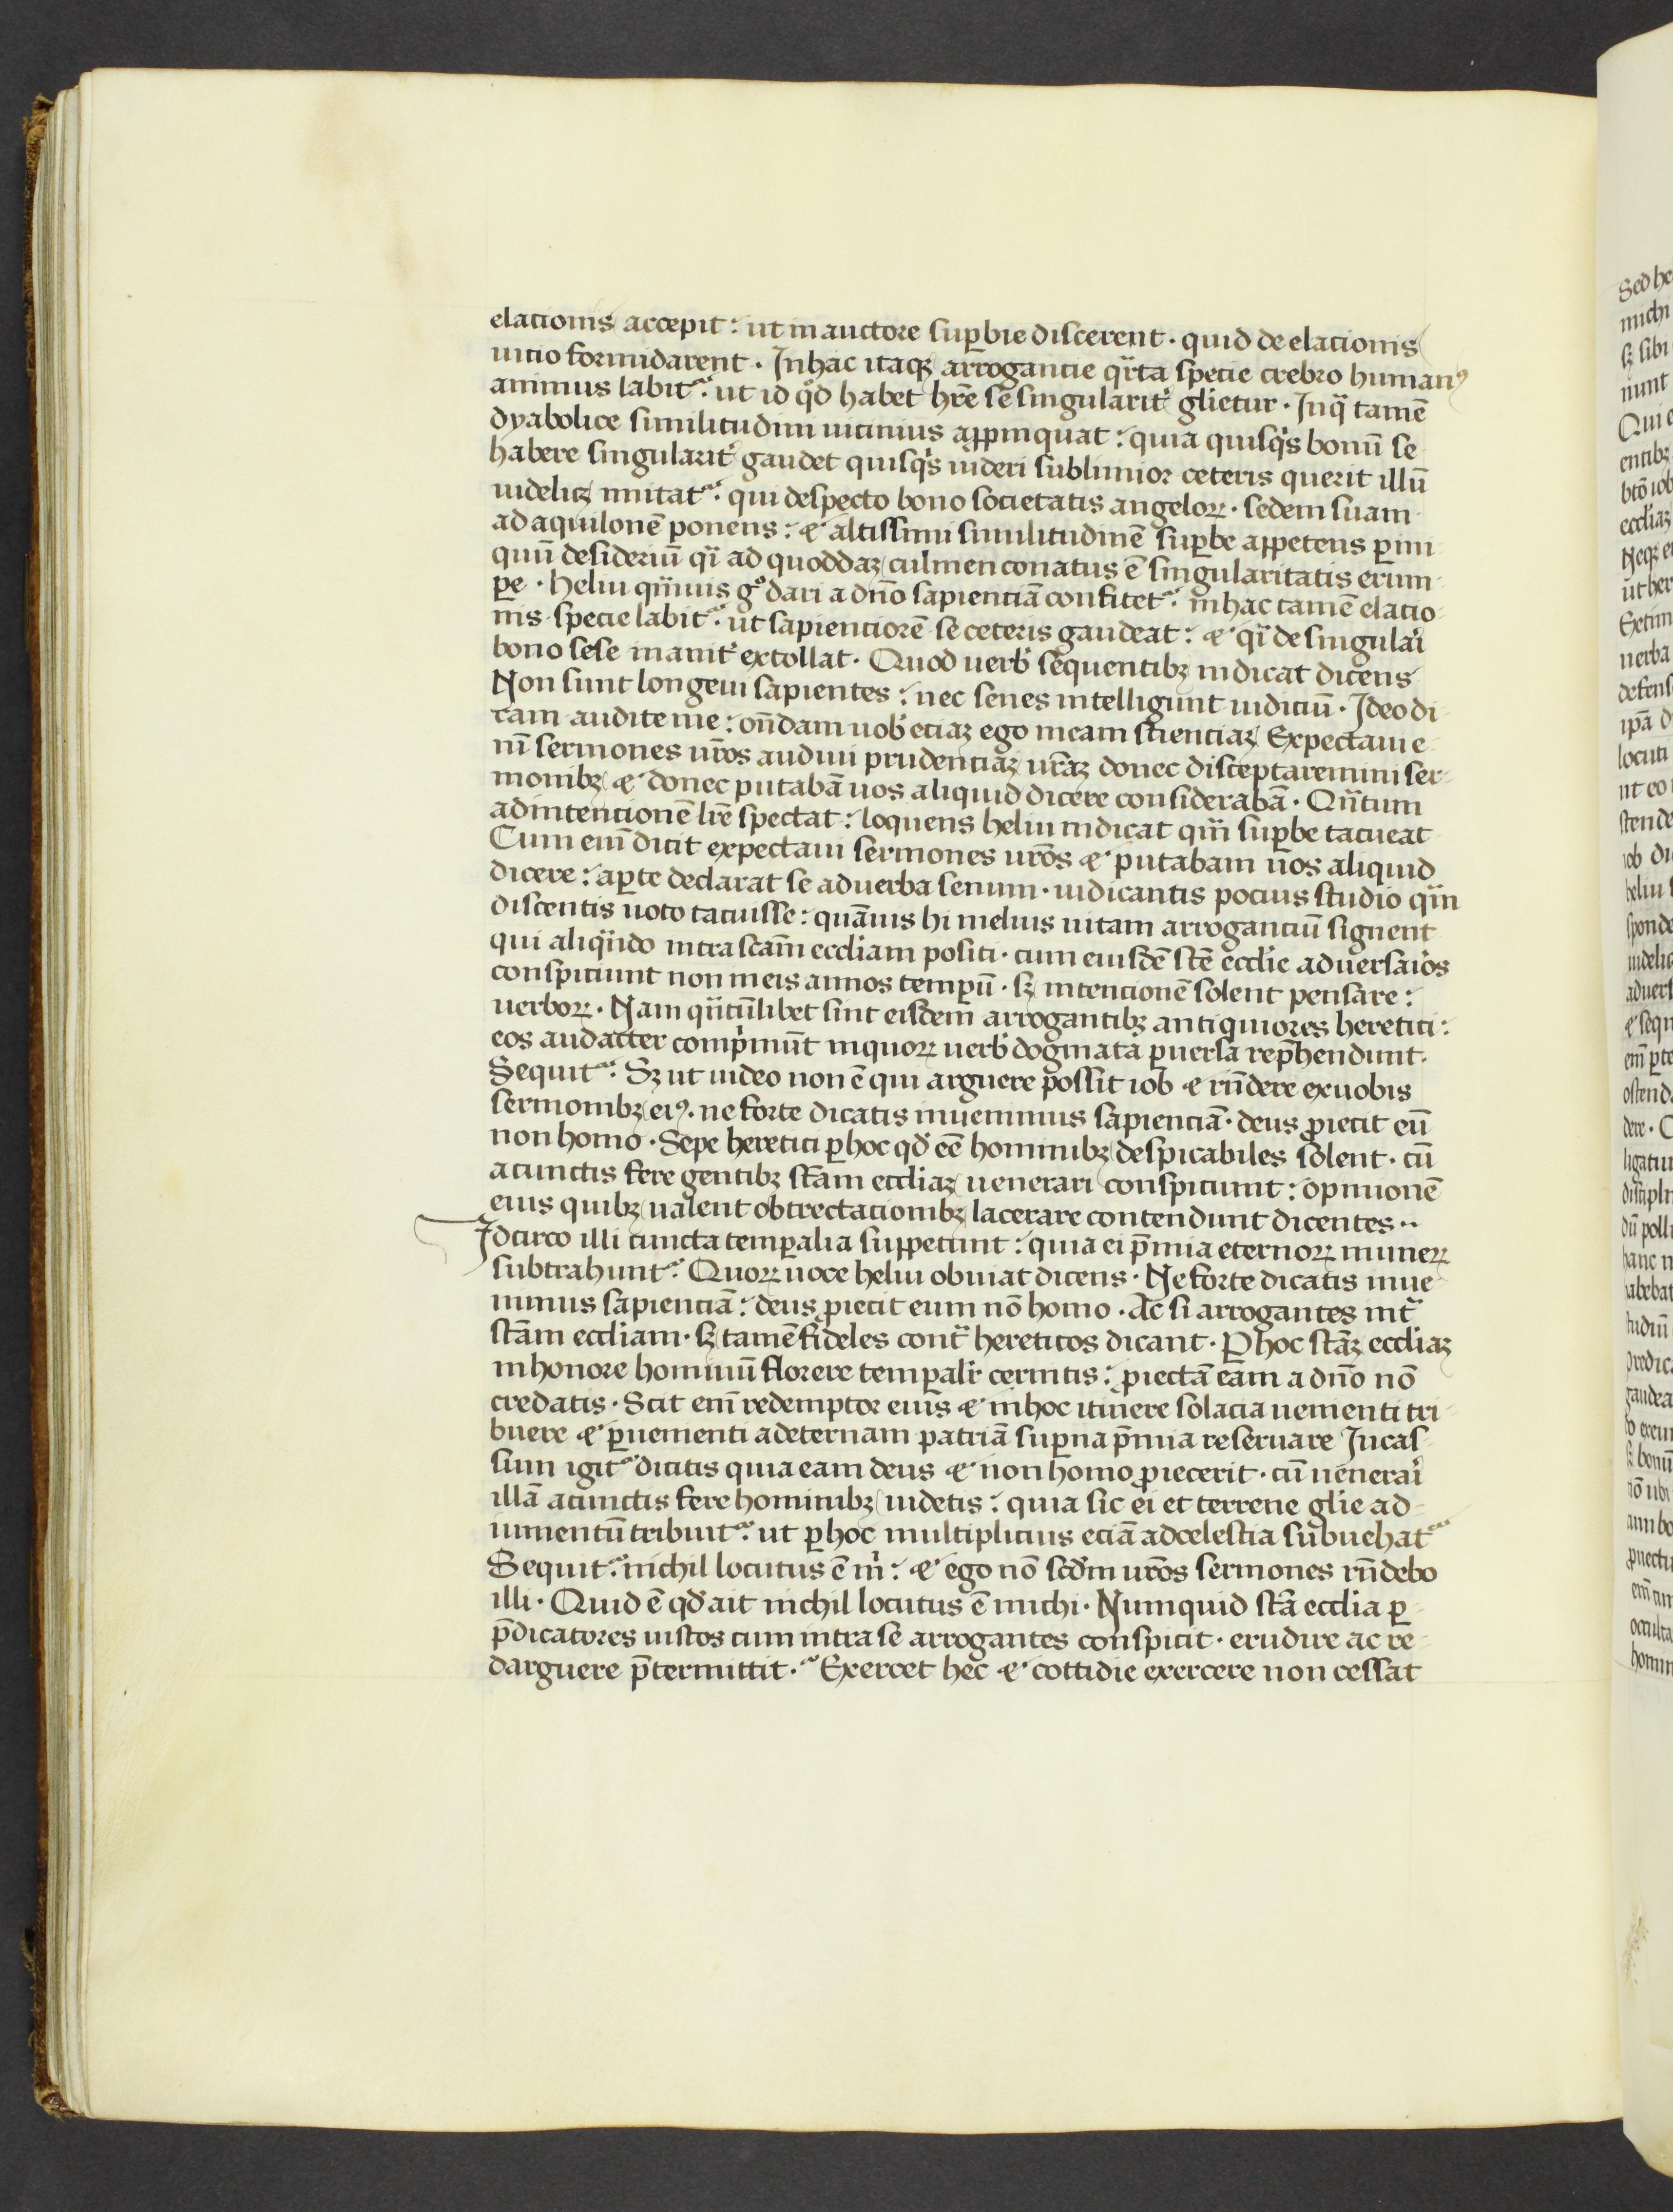 elacionis accepit: ut in auctore suꝑbie discerent · quid de elacionis
uitio formidarent · In hac itaqꝫ arrogancie qͣrta specie crebro humanꝰ
animus labit᷑: ut id qͦd habet hr̄e se singularit᷑ gl̄ietur · In qͣ tamē
dyabolice similitudini uicinius aꝓpinquat: quia quisqͥs bonū se
habere singularit᷑ gaudet quisqͥs uideri sublimior ceteris querit illū
uidelicꝫ imitat᷑: qui despecto bono societatis angeloꝝ · sedem suam
ad aquilonē ponens: & altissimi similitudinē suꝑbe appetens ꝑ ini
quū desideriū qͣi ad quoddaꝫ culmen conatus ē singularitatis erum
pe · heliu qͣmuis gͦ dari a dn̄o sapienciā confitet᷑: in hac tamē elacio
nis specie labit᷑: ut sapienciorē se ceteris gaudeat: & qͣi de singulaͥ
bono sese inanit᷑ extollat · Quod uerbͥ sequentibꝫ indicat dicens
Non sunt longeui sapientes: nec senes intelligunt iudiciū · Ideo di
cam audite me: on̄dam uobͥ eciaꝫ ego meam scienciaꝫ Expectaui e
nī sermones ur̄os audiui prudenciaꝫ ur̄aꝫ donec disceptaremini ser
monibꝫ & donec putabā uos aliquid dicere considerabā · Qͣntum
ad intencionē lr̄e spectat: loquens heliu indicat qͣm suꝑbe tacueat
Cum eni᷑ dicit expectaui sermones ur̄os & putabam uos aliquid
dicere: aꝑte declarat se ad uerba senum · iudicantis pocius studio qͣm
discentis uoto tacuisse: quāuis hi melius uitam arroganciū signent
qui aliqͣndo intra scam̄ eccl̄iam positi · cum eiusdē sc̄e eccl̄ie aduersaͥos
conspiciunt non in eis annos tempꝝ · sꝫ intencionē solent pensare:
uerboꝝ · Nam qͣntūlibet sint eisdem arrogantibꝫ antiquiores heretici:
eos audacter compͥmūt in quoꝝ uerbͥ dogmata ꝑuersa rep̄hendunt·
Sequit᷑: Sꝫ ut uideo non ē qui arguere possit iob & rn̄dere ex uobis
sermonibꝫ eiꝰ · ne forte dicatis inuenimus sapienciā · deus ꝓiecit eū
non homo · Sepe heretici ꝑ hoc qd᷑ eē hominibꝫ despicabiles solent · cū
a cunctis fere gentibꝫ sc̄am eccl̄iaꝫ uenerari conspiciunt: opinionē
eius quibꝫ ualent obtrectacionibꝫ lacerare contendunt dicentes ··
Idcirco illi cuncta temꝑalia suppetunt: quia ei p̄mia eternoꝝ muneꝝ
subtrahunt᷑: Quoꝝ uoce heliu obuiat dicens · Ne forte dicatis inue
nimus sapienciā: deus ꝓiecit eum nō homo · Ac si arrogantes intͣ
sc̄am eccl̄iam · sꝫ tamē fideles contͣ hereticos dicant · P hoc sc̄aꝫ eccl̄iaꝫ
in honore hominū florere temꝑalit᷑ cernitis: ꝓiectā eam a dn̄o nō
credatis · Scit eni᷑ redemptor eius & in hoc itinere solacia uenienti tri
buere & ꝑuenienti ad eternam patriā suꝑna p̄mia reseruare In cas
sum igit᷑ dicitis quia eam deus & non homo ꝓiecerit · cū ueneraͥ
illā a cunctis fere hominibꝫ uidetis: quia sic ei et terrene gl̄ie ad
iumentū tribuit᷑: ut ꝑ hoc multiplicius eciā ad celestia subuehat᷑
Sequit᷑: nichil locutus ē mͥ: & ego nō scd᷑m ur̄os sermones rn̄debo
illi · Quid ē qd᷑ ait nichil locutus ē michi · Numquid sc̄a eccl̄ia ꝑ
p̄dicatores iustos cum intra se arrogantes conspicit · erudire ac re
darguere p̄termittit · Exercet hec & cottidie exercere non cessat